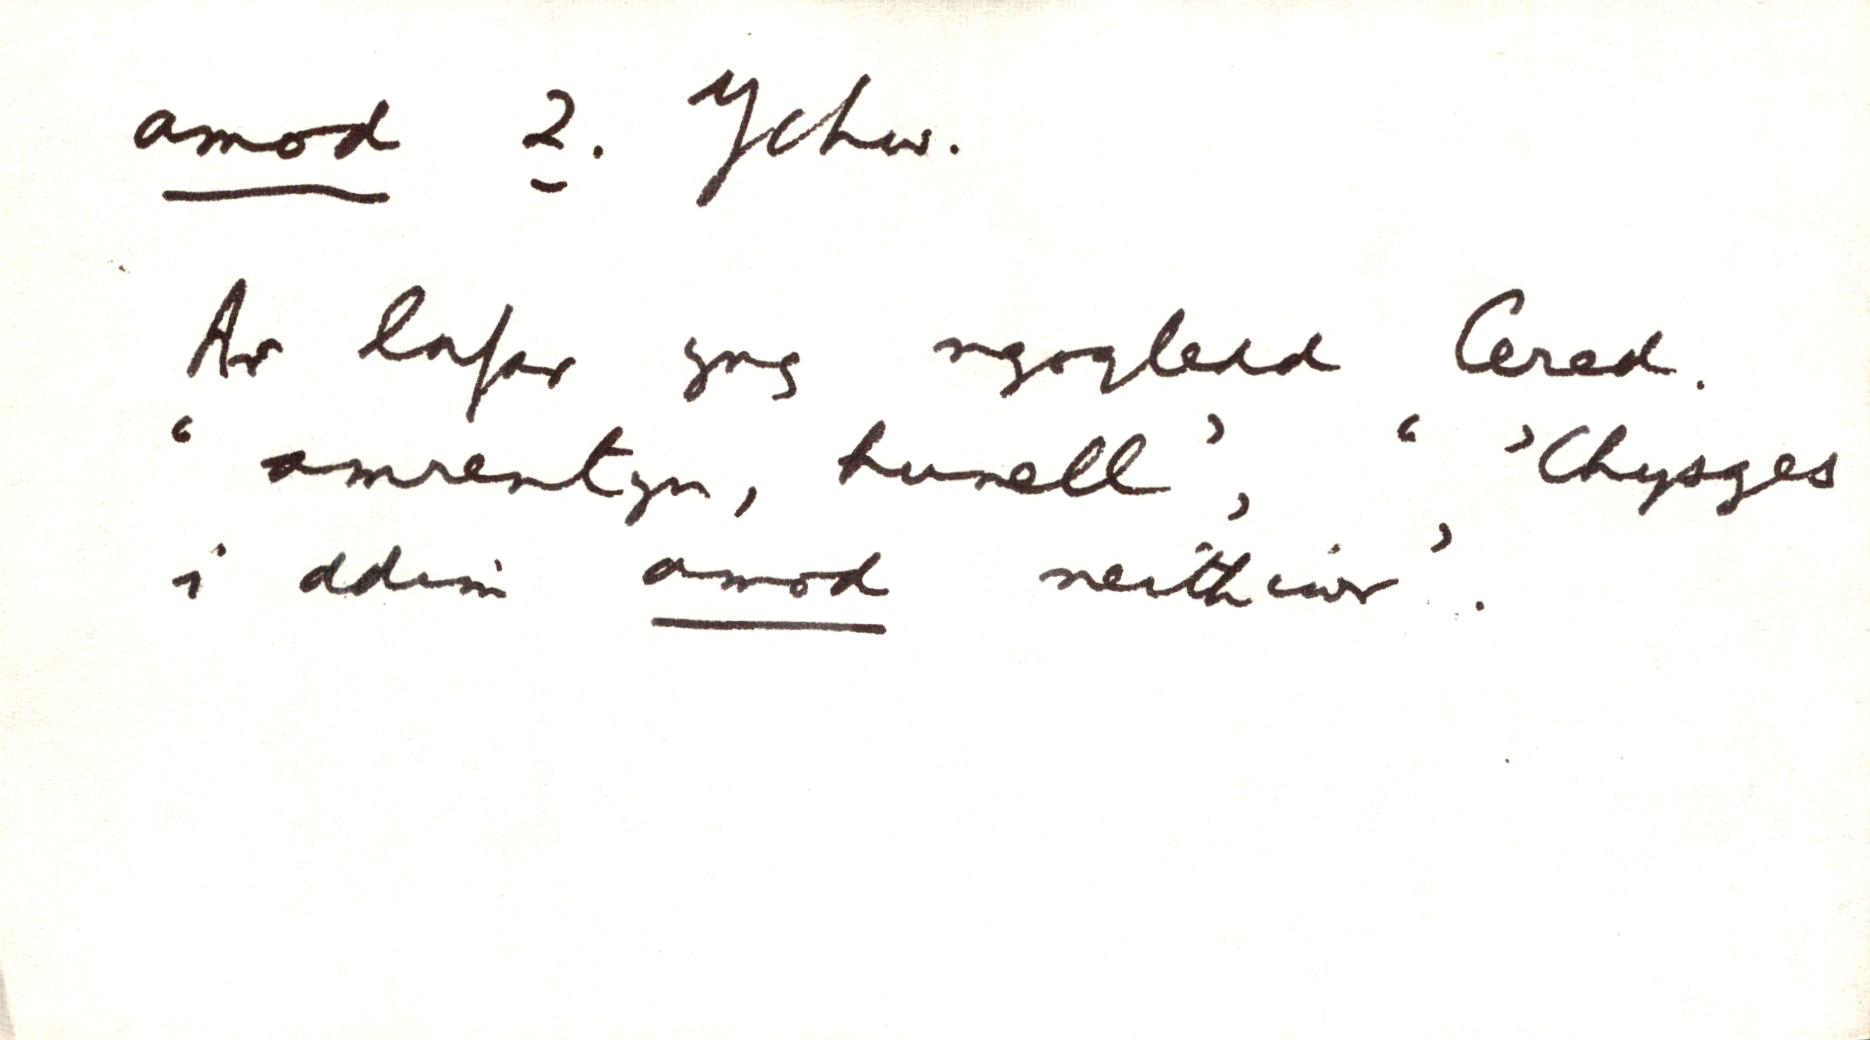 amod 2. Ychw.
Ar lafar yng ngogledd Cered.
‘amrentyn, hunell’, ‘’Chysges
i ddim amod neithiwr’.